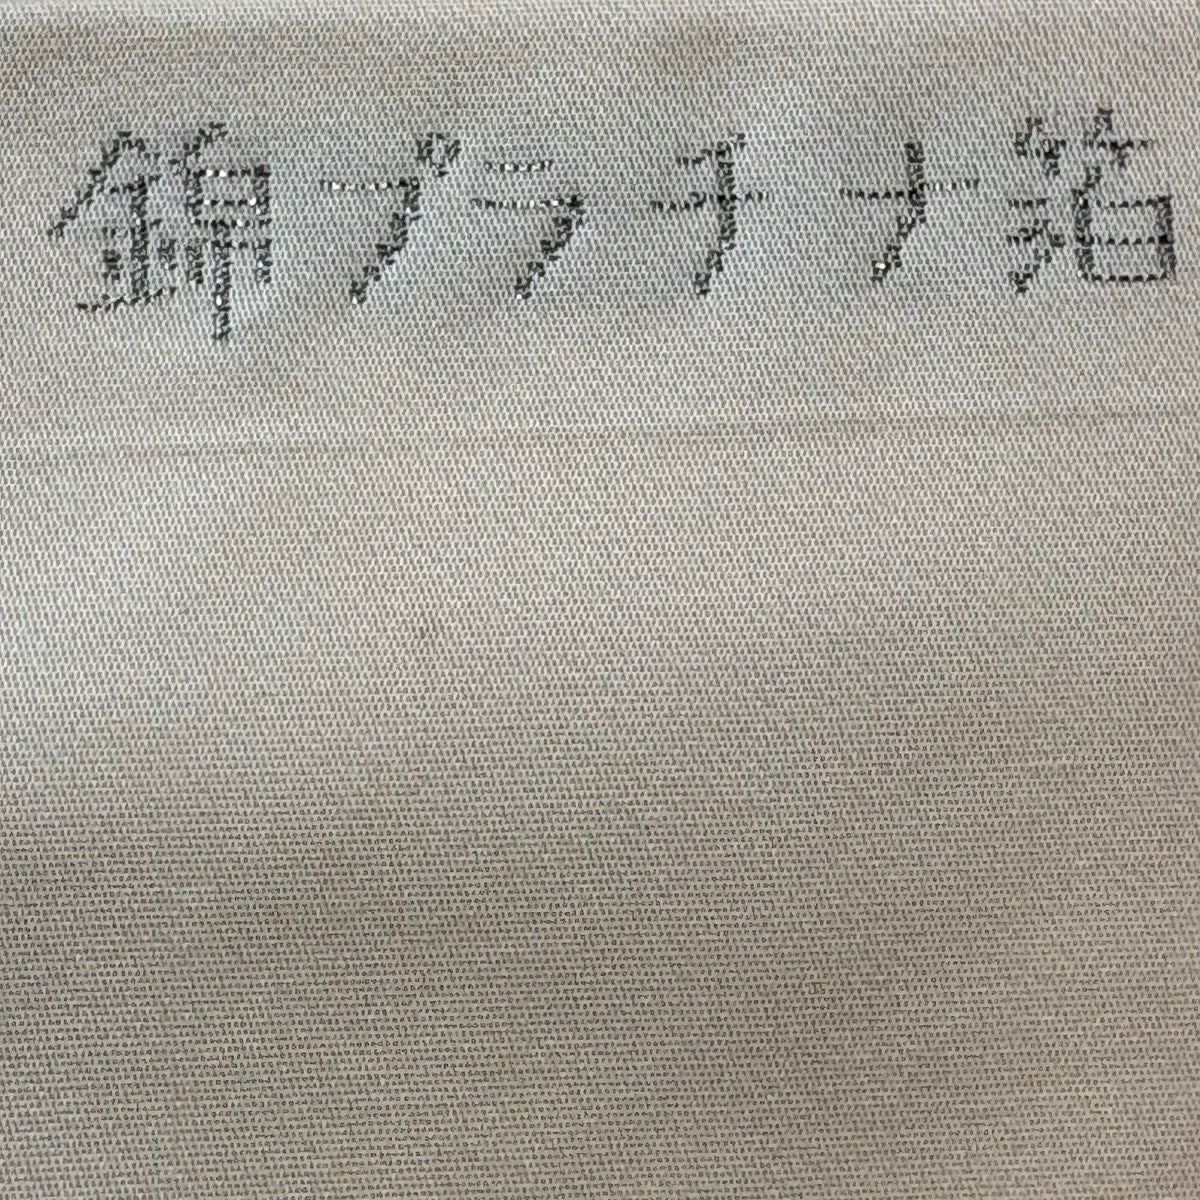 錦プラチナ箔